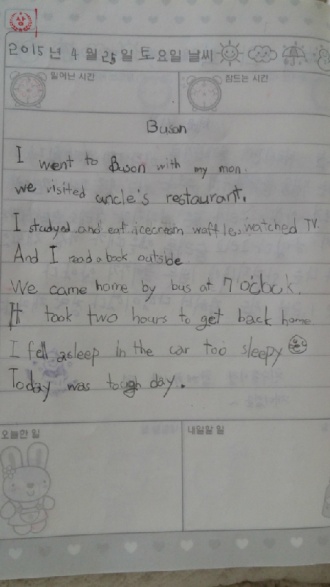 2015년 4월 25일 토요일 날씨
일어난 시간
잠드는 시간
Busan
I went to Busan with my mom.
we visited uncle's restaurant.
I studyed and eat icecream waffles, watched TV
And I read a book outside
We came home by bus at 7 o'clock.
It took two hours to get back home
I fell asleep in the car too sleepy
Today was tough day.
오늘한 일
내일할 일